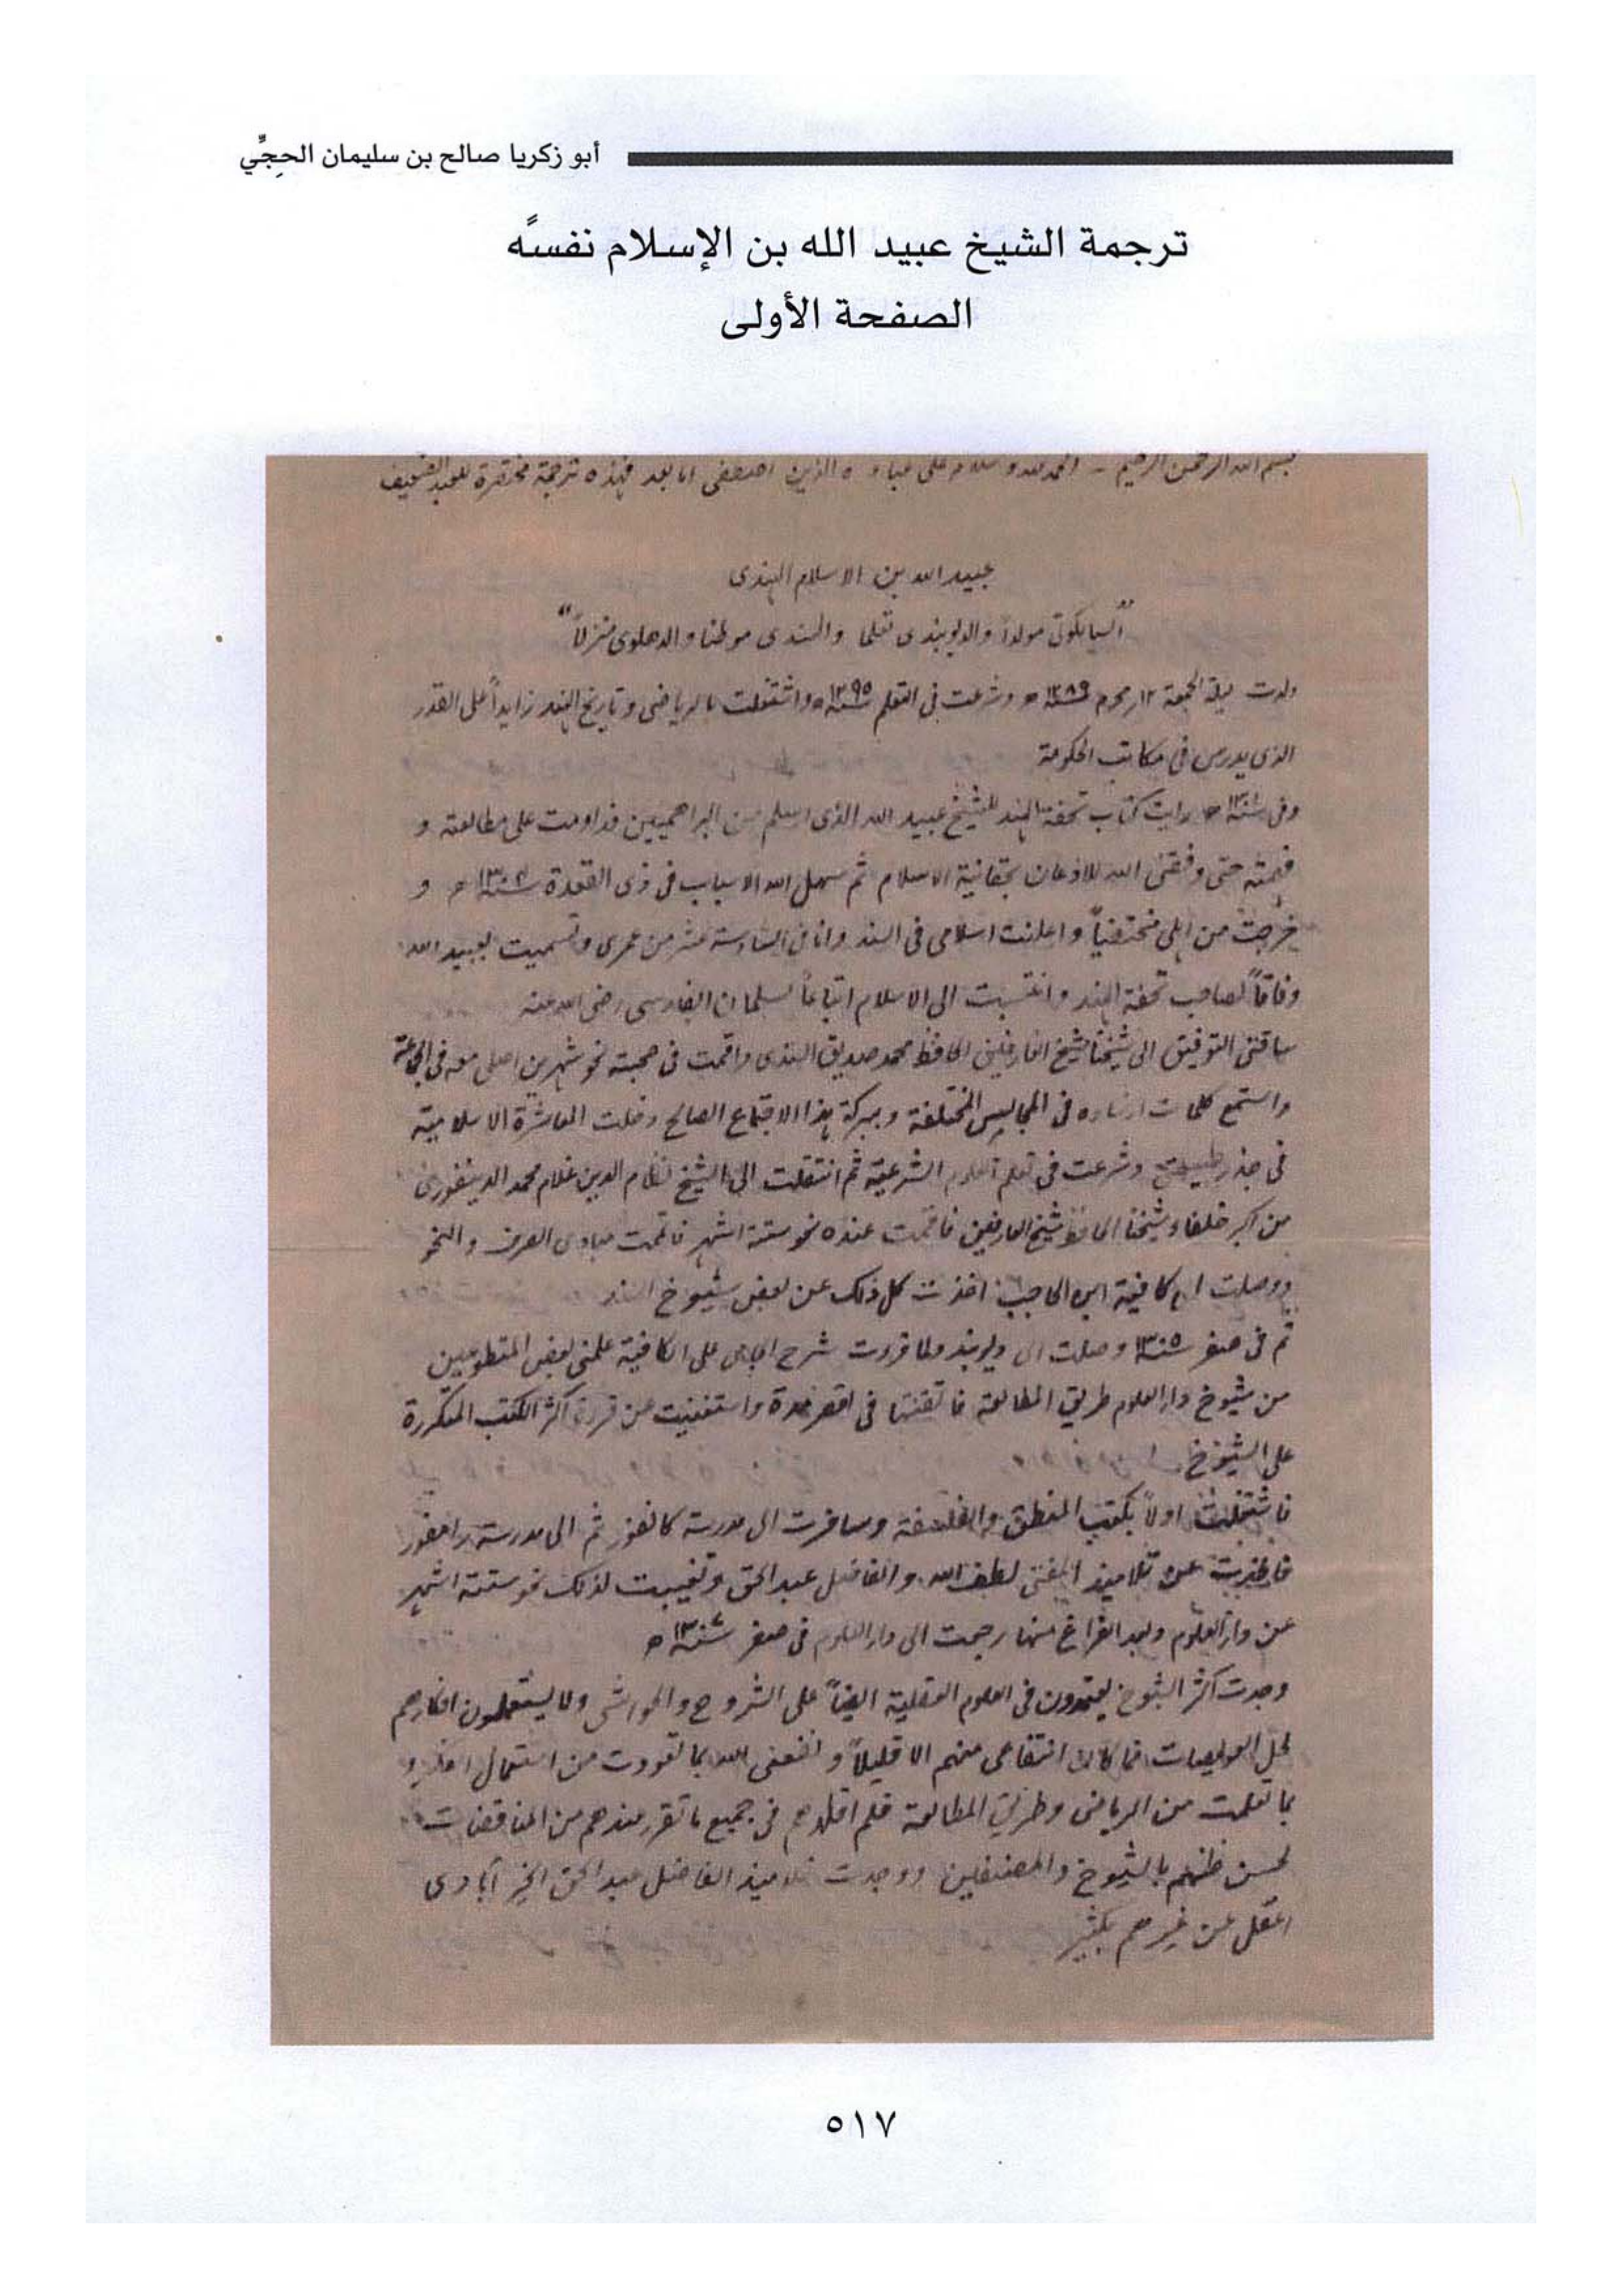 أبو زكريا صالح بن سليمان الحجِّي
ترجمة الشيخ عبيد الله بن الإسلام نفسه
الصفحة الأولى
بسم الله الرحمن الرحيم - الحمد لله وسلام على عباده الذين اصطفى اما بعد فهذه ترجمة مختصرة للعبد الضعيف
عبيد الله بن الاسلام الهندى
"السيالكوتى مولداً والديوبندى تعلما والسندى موطنا والدهلوى منزلاً"
ولدت ليلة الجمعة ١٢ محرم سنة ١٢٨٩ ھ وشرعت فى التعلم سنة ١٢٩٥ ھ واشتغلت بالرياضى وتاريخ الهند زايداً على القدر
الذى يدرس فى مكاتب الحكومة
وفى سنة ھ رايت كتاب تحفة الهند للشيخ عبيد الله الذى اسلم من البراهميين فداومت على مطالعته و
فهمته حتى وفقنى الله للاذعان بحقانية الاسلام ثم سهل الله الاسباب فى ذى القعدة سنة ھ و
خرجت من اهلى مختفياً واعلنت اسلامى فى السند وانا فى السادسة عشر من عمرى وتسميت بعبيد الله
وفاقاً لصاحب تحفة الهند وانتسبت الى الاسلام اتباعاً لسلمان الفارسى رضى الله عنه
ساقنى التوفيق الى شيخنا شيخ العارفين الحافظ محمد صديق السندى واقمت فى صحبته نحو شهرين اصلى معه فى الجماعة
واستمع كلمات ارشاده فى المجالس المختلفة وببركة هذا الاجتماع الصالح دخلت المعاشرة الاسلامية
فى جذر طبيعتى وشرعت فى تعلم العلوم الشرعية ثم انتقلت الى الشيخ نظام الدين غلام محمد الدينفورى
من اكبر خلفاء شيخنا الحافظ شيخ العارفين فاقمت عنده نحو ستة اشهر فاتممت مبادى الصرف والنحو
ووصلت الى كافية ابن الحاجب اخذت كل ذلك عن بعض شيوخ السند
ثم فى صفر سنة ١٣٠٥ وصلت الى ديوبند ولما قرءت شرح الجامى على الكافية علمنى بعض المتطوعين
من شيوخ دار العلوم طريق المطالعة فاتقنتها فى اقصر مدة واستغنيت عن قرءة اكثر الكتب المتكررة
على الشيوخ
فاشتغلت اولاً بكتب المنطق والفلسفة وسافرت الى مدرسة كانفور ثم الى مدرسة رامفور
فاخذت عن تلاميذ المفتى لطف الله والفاضل عبد الحق وتغيبت لذلك نحو ستة اشهر
عن دار العلوم وبعد الفراغ منها رجعت الى دار العلوم فى صفر سنة ھ
وجدت اكثر الشيوخ يعتمدون فى العلوم العقلية ايضاً على الشروح والحواشى ولا يستعملون افكارهم
لحل العويصات فما كان انتفاعى منهم الا قليلاً ونفعنى الله بما تعودت من استعمال افكارى و
بما تعلمت من الرياضى وطريق المطالعة فلم اقلدهم فى جميع ما تقرر عندهم من المناقضات
لحسن ظنهم بالشيوخ والمصنفين ووجدت تلاميذ الفاضل عبد الحق الخير آبادى
اعقل عن غيرهم بكثير
٥١٧